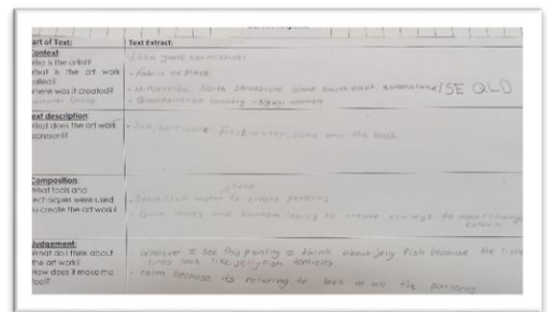 art of Text:
Text Extract:
Context:
Who is the artist?
What is the art work
called?
where was it created?
- Elisa Jane Carmichael
- Fabric of Place
- North Stradbroke island South east queensland / SE QLD
- Quandamooka country - Ngugi women
ext description:
What does the art work
represent?
- Sea, salt water, Freshwater, Sand and the bush
Composition:
What tools and
echniques were used
o create the art work?
sand
water to create patterns
- Gum leaves and leaves to create eco dye to
Judgement:
What do I think about
the art work?
How does it make me
feel?
- Whenever I see this painting I think about jely fish because the little
lines look like jellyfish tenticles
- calm because its relaxing to look at all the patterns